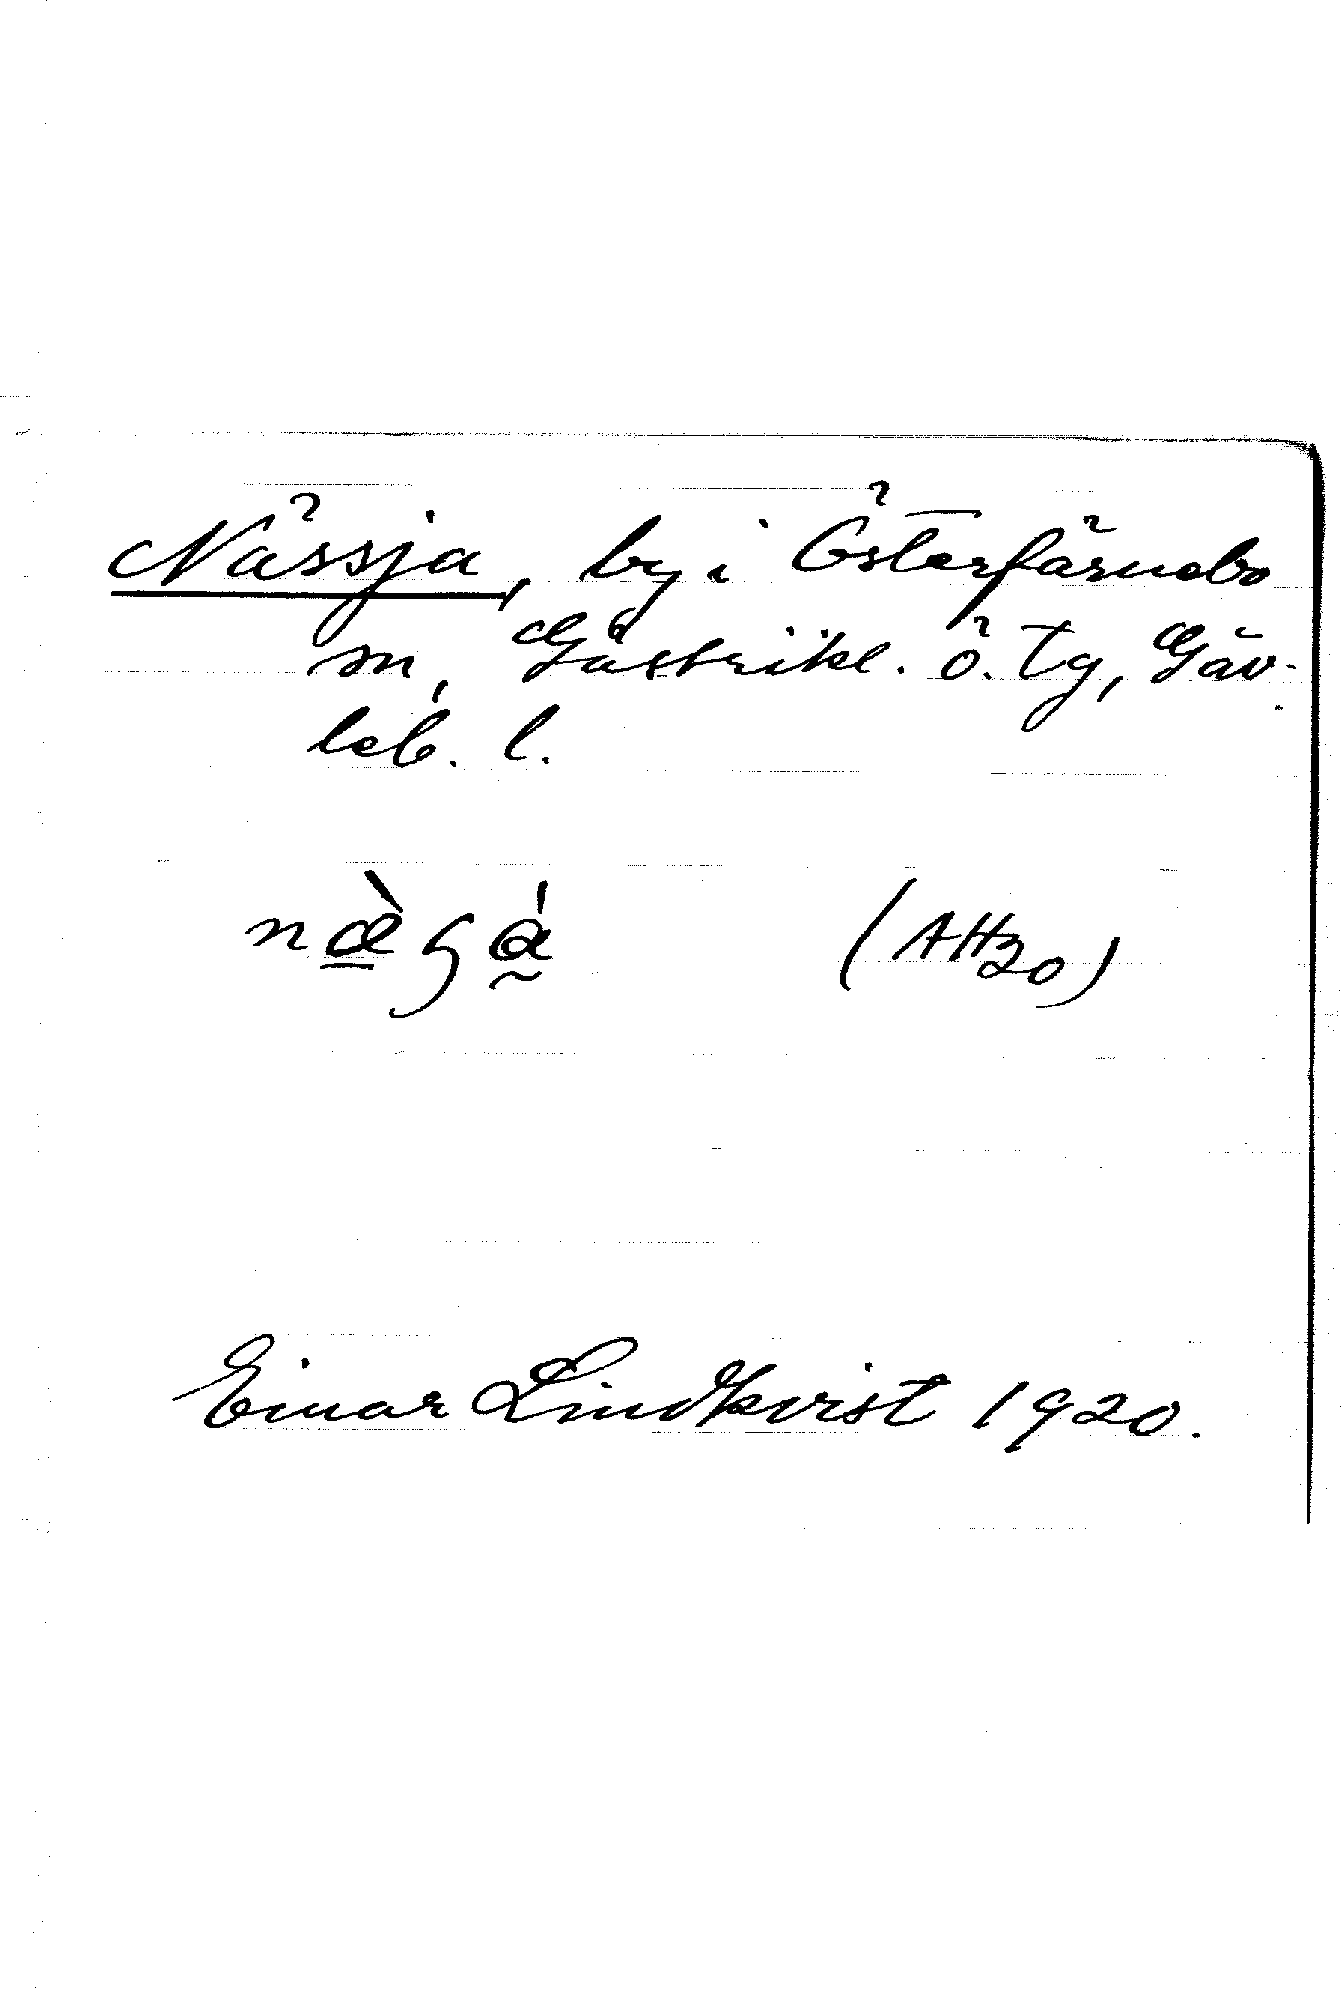 Nässja, by i Österfärnebo
sn, Gästrikl. ö. tg, Gäv-
leb. l.
(AH20)
Einar Lindkvist 1920.